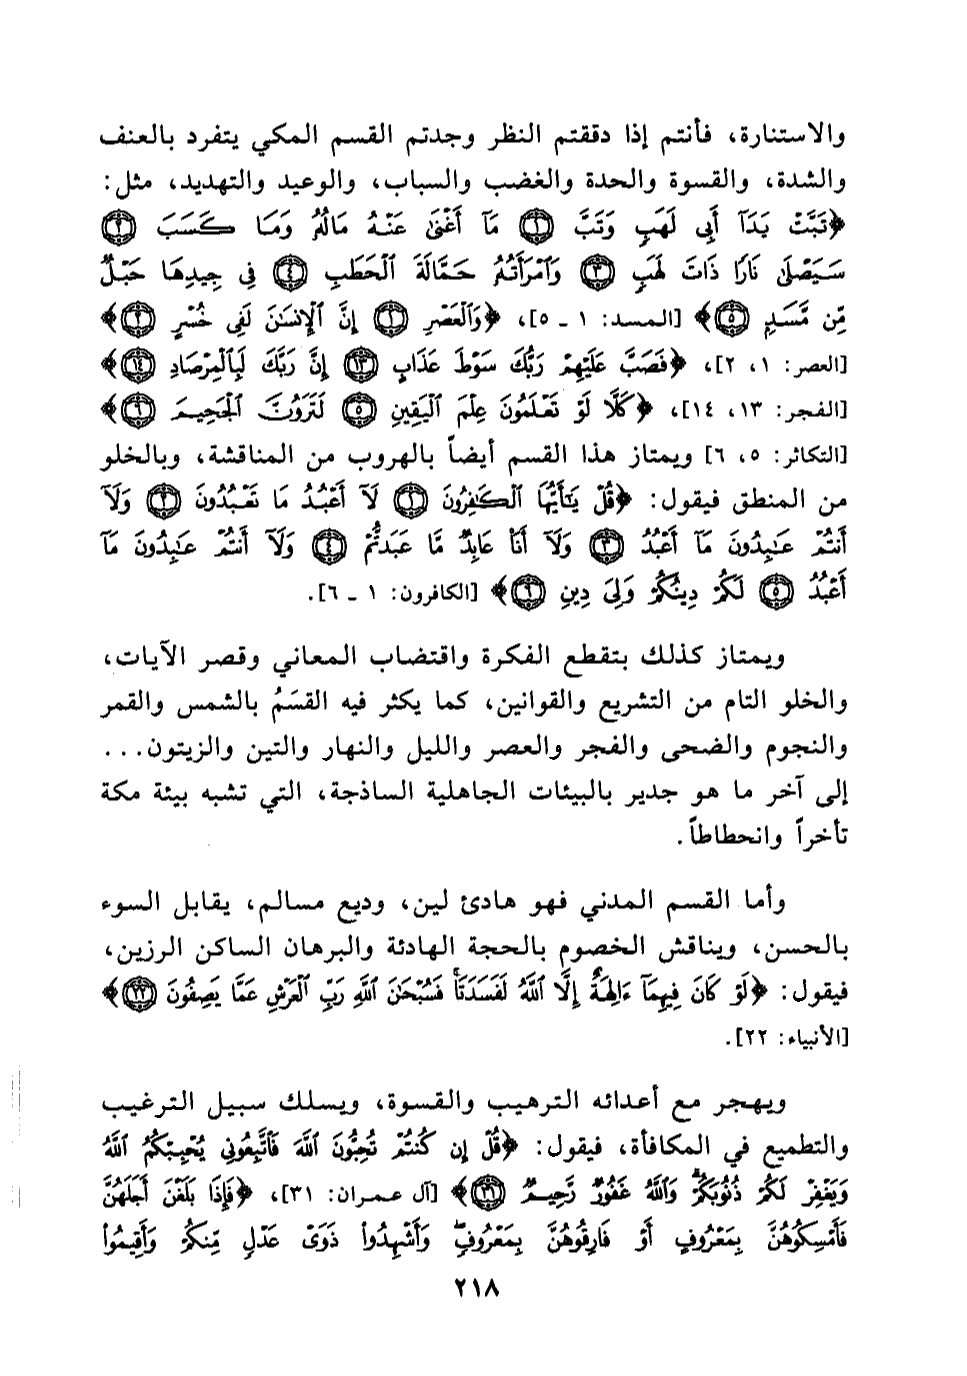 والاستنارة، فأنتم إذا دققتم النظر وجدتم القسم المكي يتفرد بالعنف
والشدة، والقسوة والحدة والغضب والسباب، والوعيد والتهديد، مثل:
﴿تَبَّتْ يَدَآ أَبِى لَهَبٍ وَتَبَّ ۝١ مَآ أَغْنَىٰ عَنْهُ مَالُهُۥ وَمَا كَسَبَ ۝٢
سَيَصْلَىٰ نَارًا ذَاتَ لَهَبٍ ۝٣ وَٱمْرَأَتُهُۥ حَمَّالَةَ ٱلْحَطَبِ ۝٤ فِى جِيدِهَا حَبْلٌ
مِّن مَّسَدٍۭ ۝٥﴾ [المسد: ١ ـ ٥]، ﴿وَٱلْعَصْرِ ۝١ إِنَّ ٱلْإِنسَٰنَ لَفِى خُسْرٍ ۝٢﴾
[العصر: ١، ٢]، ﴿فَصَبَّ عَلَيْهِمْ رَبُّكَ سَوْطَ عَذَابٍ ۝١٣ إِنَّ رَبَّكَ لَبِٱلْمِرْصَادِ ۝١٤﴾
[الفجر: ١٣، ١٤]، ﴿كَلَّا لَوْ تَعْلَمُونَ عِلْمَ ٱلْيَقِينِ ۝٥ لَتَرَوُنَّ ٱلْجَحِيمَ ۝٦﴾
[التكاثر: ٥، ٦] ويمتاز هذا القسم أيضاً بالهروب من المناقشة، وبالخلو
من المنطق فيقول: ﴿قُلْ يَٰٓأَيُّهَا ٱلْكَٰفِرُونَ ۝١ لَآ أَعْبُدُ مَا تَعْبُدُونَ ۝٢ وَلَآ
أَنتُمْ عَٰبِدُونَ مَآ أَعْبُدُ ۝٣ وَلَآ أَنَا۠ عَابِدٌ مَّا عَبَدتُّمْ ۝٤ وَلَآ أَنتُمْ عَٰبِدُونَ مَآ
أَعْبُدُ ۝٥ لَكُمْ دِينُكُمْ وَلِىَ دِينِ ۝٦﴾ [الكافرون: ١ ـ ٦].
ويمتاز كذلك بتقطع الفكرة واقتضاب المعاني وقصر الآيات،
والخلو التام من التشريع والقوانين، كما يكثر فيه القسَمُ بالشمس والقمر
والنجوم والضحى والفجر والعصر والليل والنهار والتين والزيتون...
إلى آخر ما هو جدير بالبيئات الجاهلية الساذجة، التي تشبه بيئة مكة
تأخراً وانحطاطاً.
وأما القسم المدني فهو هادئ لين، وديع مسالم، يقابل السوء
بالحسن، ويناقش الخصوم بالحجة الهادئة والبرهان الساكن الرزين،
فيقول: ﴿لَوْ كَانَ فِيهِمَآ ءَالِهَةٌ إِلَّا ٱللَّهُ لَفَسَدَتَا ۚ فَسُبْحَٰنَ ٱللَّهِ رَبِّ ٱلْعَرْشِ عَمَّا يَصِفُونَ ۝٢٢﴾
[الأنبياء: ٢٢].
ويهجر مع أعدائه الترهيب والقسوة، ويسلك سبيل الترغيب
والتطميع في المكافأة، فيقول: ﴿قُلْ إِن كُنتُمْ تُحِبُّونَ ٱللَّهَ فَٱتَّبِعُونِى يُحْبِبْكُمُ ٱللَّهُ
وَيَغْفِرْ لَكُمْ ذُنُوبَكُمْ ۗ وَٱللَّهُ غَفُورٌ رَّحِيمٌ ۝٣١﴾ [آل عمران: ٣١]، ﴿فَإِذَا بَلَغْنَ أَجَلَهُنَّ
فَأَمْسِكُوهُنَّ بِمَعْرُوفٍ أَوْ فَارِقُوهُنَّ بِمَعْرُوفٍ وَأَشْهِدُوا۟ ذَوَىْ عَدْلٍ مِّنكُمْ وَأَقِيمُوا۟
٢١٨